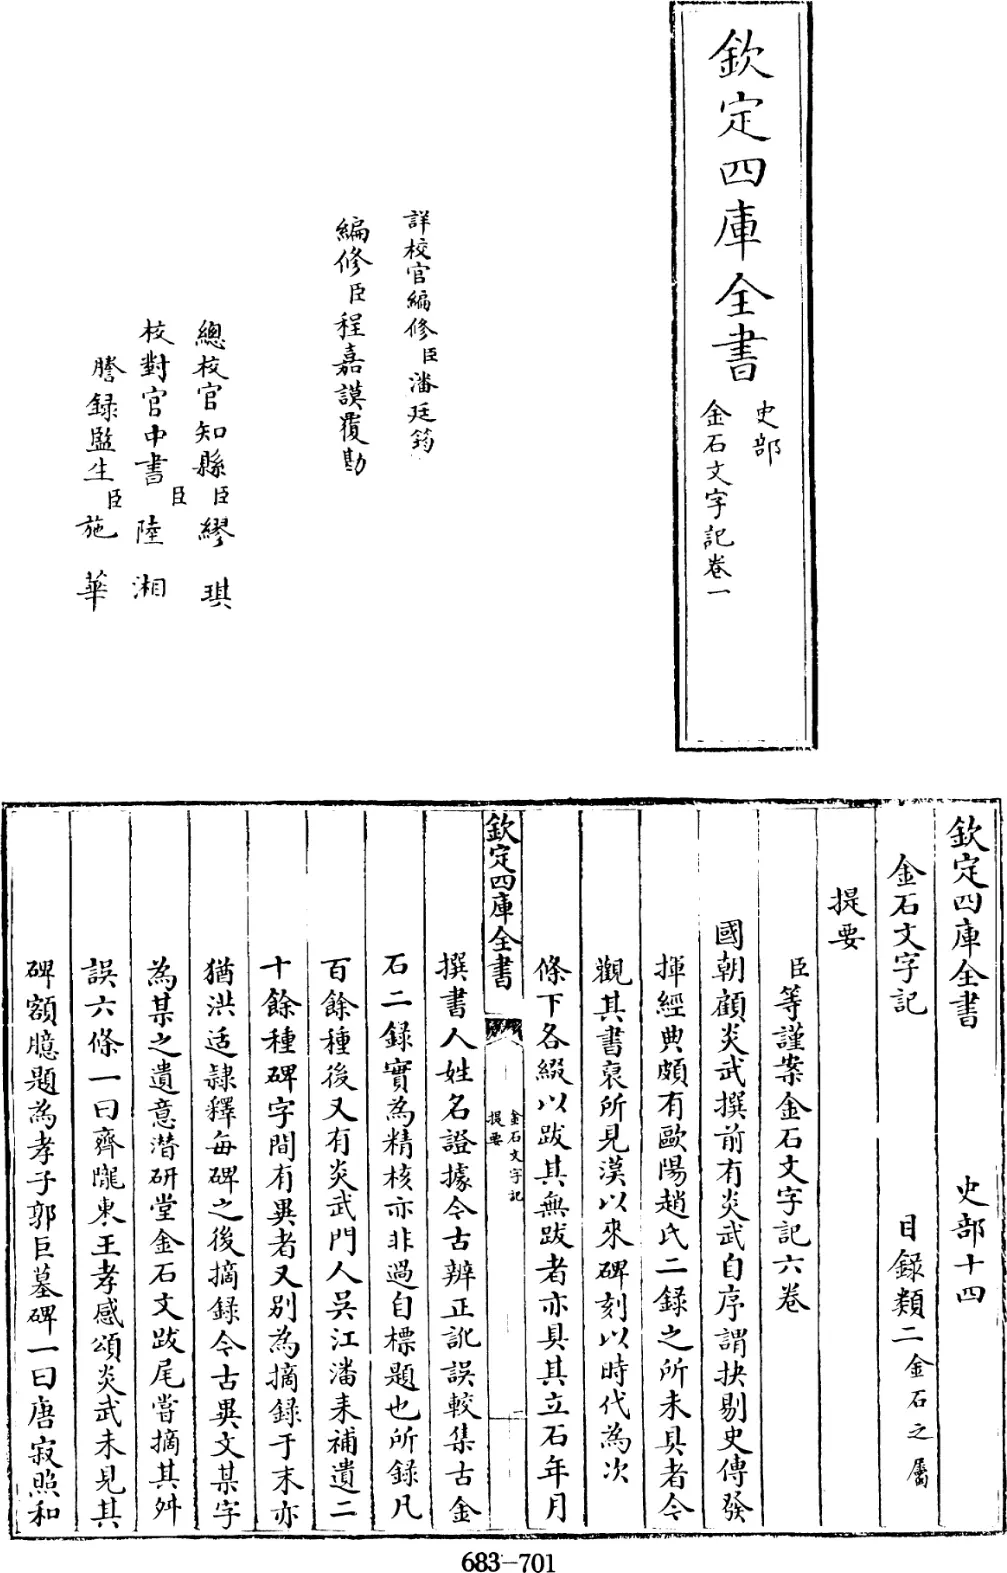 欽定四庫全書
史部
金石文字記卷一
詳校官編修臣潘廷筠
編修臣程嘉謨覆勘
總校官知縣臣繆琪
校對官中書臣陸湘
謄錄監生臣施華
欽定四庫全書 史部十四
金石文字記 目錄類二金石之屬
提要
臣等謹案金石文字記六卷
國朝顧炎武撰前有炎武自序謂抉剔史傳發
揮經典頗有歐陽趙氏二錄之所未具者今
觀其書裒所見漢以來碑刻以時代為次
條下各綴以跋其無跋者亦具其立石年月
欽定四庫全書
金石文字記
提要
撰書人姓名證據今古辨正訛誤較集古金
石二錄實為精核亦非過自標題也所錄凡
百餘種後又有炎武門人吳江潘耒補遺二
十餘種碑字間有異者又別為摘錄于末亦
猶洪适隸釋每碑之後摘錄今古異文某字
為某之遺意潛研堂金石文跋尾嘗摘其舛
誤六條一曰齊隴東王孝感頌炎武未見其
碑額臆題為孝子郭巨墓碑一曰唐寂照和
683-701